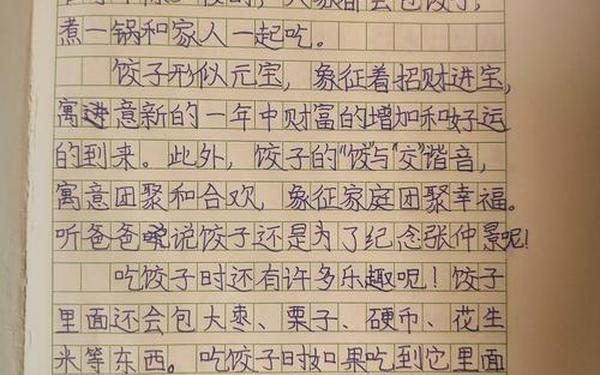 大家都会包饺子,
煮一锅和家人一起吃。
饺子形似元宝,象征着招财进宝,
寓意新的一年中财富的增加和好运
的到来。此外,饺子的“饺”与“交”谐音,
寓意团聚和合欢,象征家庭团聚幸福。
听爸爸说饺子还是为了纪念张仲景呢!
吃饺子时还有许多乐趣呢!饺子
里面还会包大枣、栗子、硬币、花生
米等东西。吃饺子时如果吃到它里面